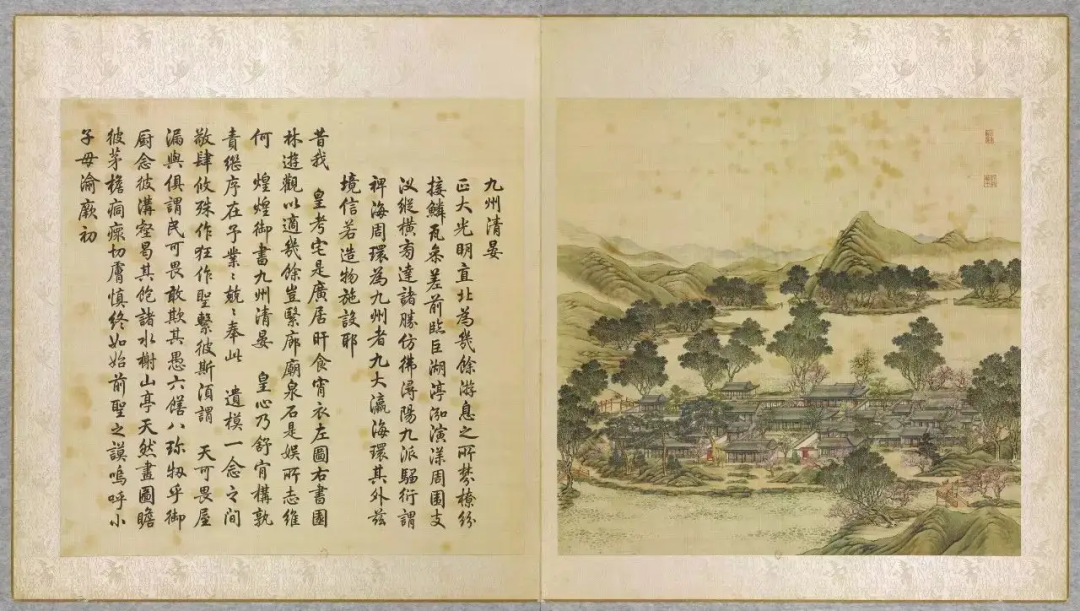 九州清晏
正大光明直北為幾餘游息之所棼橑紛
接鱗瓦參差前臨巨湖渟泓演漾周圍支
汊縱横旁達諸勝仿彿潯陽九派騶衍謂
裨海周環為九州者九大瀛海環其外茲
境信若造物施設耶
昔我 皇考宅是廣居旰食宵衣左圖右書園
林遊觀以適幾餘豈繄廊廟泉石是娛所志維
何 煌煌御書九州清晏 皇心乃舒宵構孰
責繼序在予業〻兢〻奉此 遺模一念之間
敬肆攸殊作狂作聖繫彼斯須謂 天可畏屋
漏與俱謂民可畏敢欺其愚六饍八珍牣乎御
厨念彼溝壑曷其飽諸水榭山亭天然畫圖瞻
彼茅檐痌瘝切膚慎終如始前聖之謨嗚呼小
子毋渝厥初